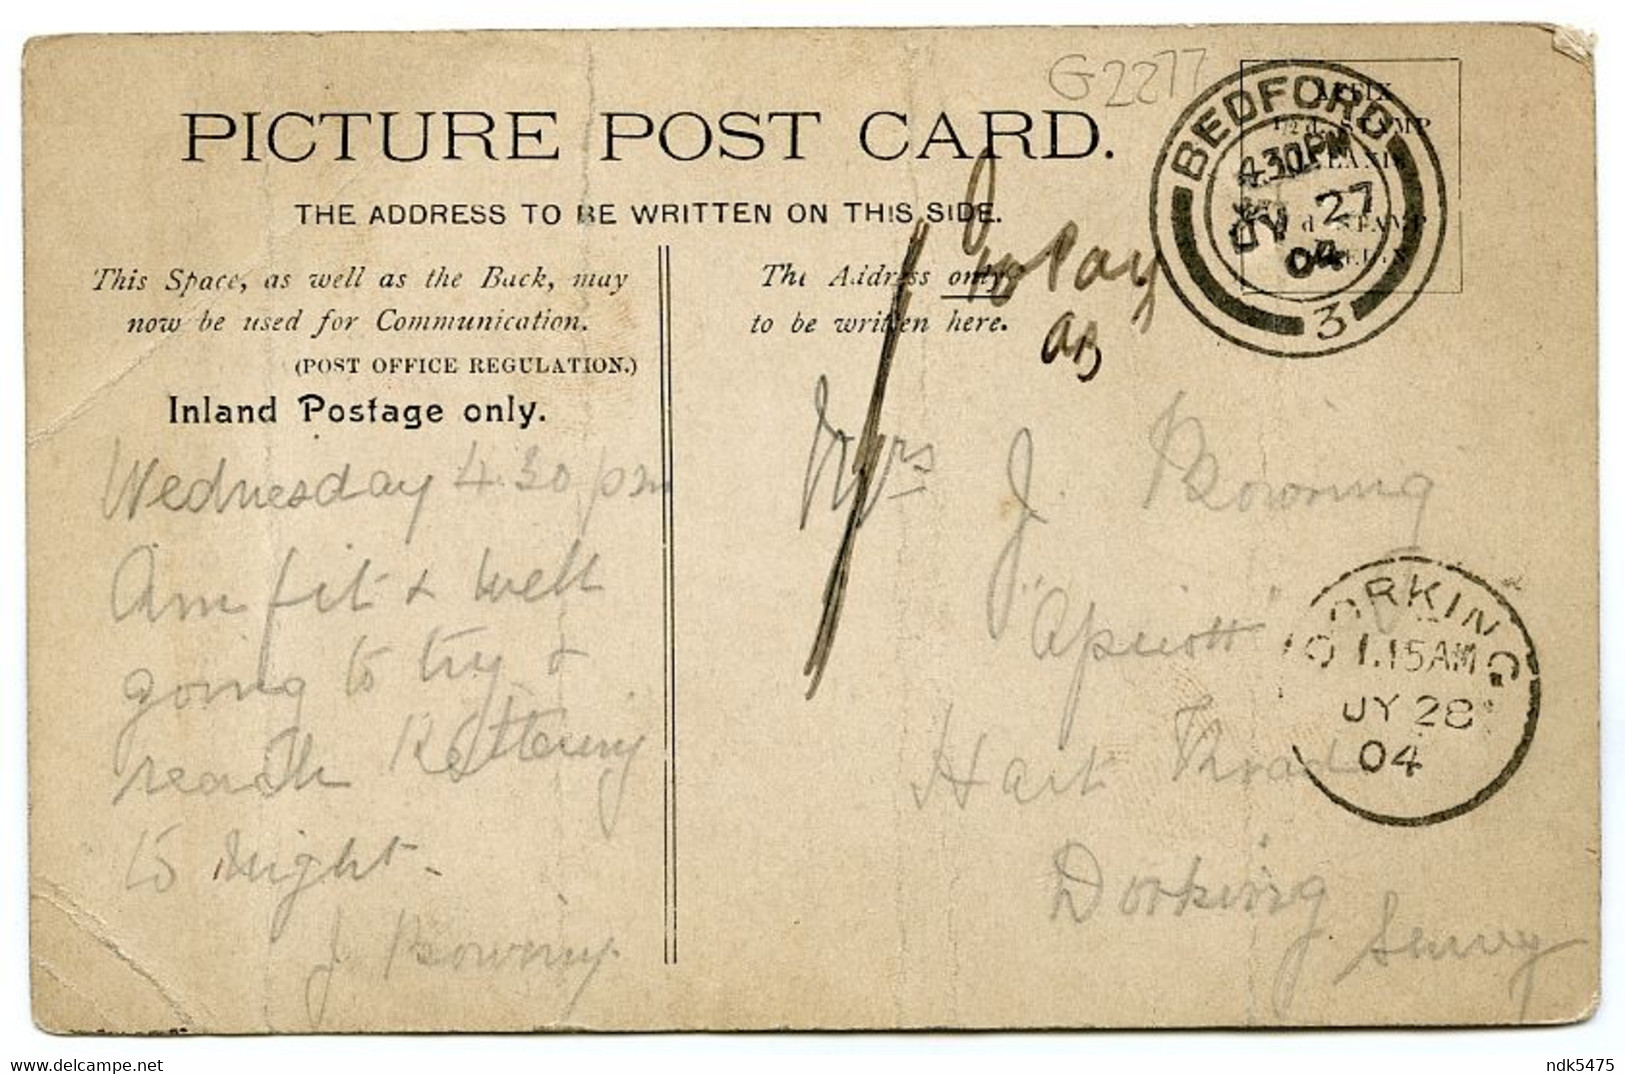 G2277
PICTURE POST CARD.
THE ADDRESS TO BE WRITTEN ON THIS SIDE.
This Space, as well as the Back, may
now be used for Communication.
(POST OFFICE REGULATION.)
Inland Postage only.
The Address only
to be written here.
to Pay
AFFIX
½d. STAMP
BEDFORD
4.30 PM
JY 27
04
3
Wednesday 4.30 pm
Am fit & well
going to try &
reach Kettering
to night.
J. Browning.
Mrs J. Browning
Hart Road
Dorking
Surrey
DORKING
1.15AM
JY 28
04
delcampe.net
ndk5475